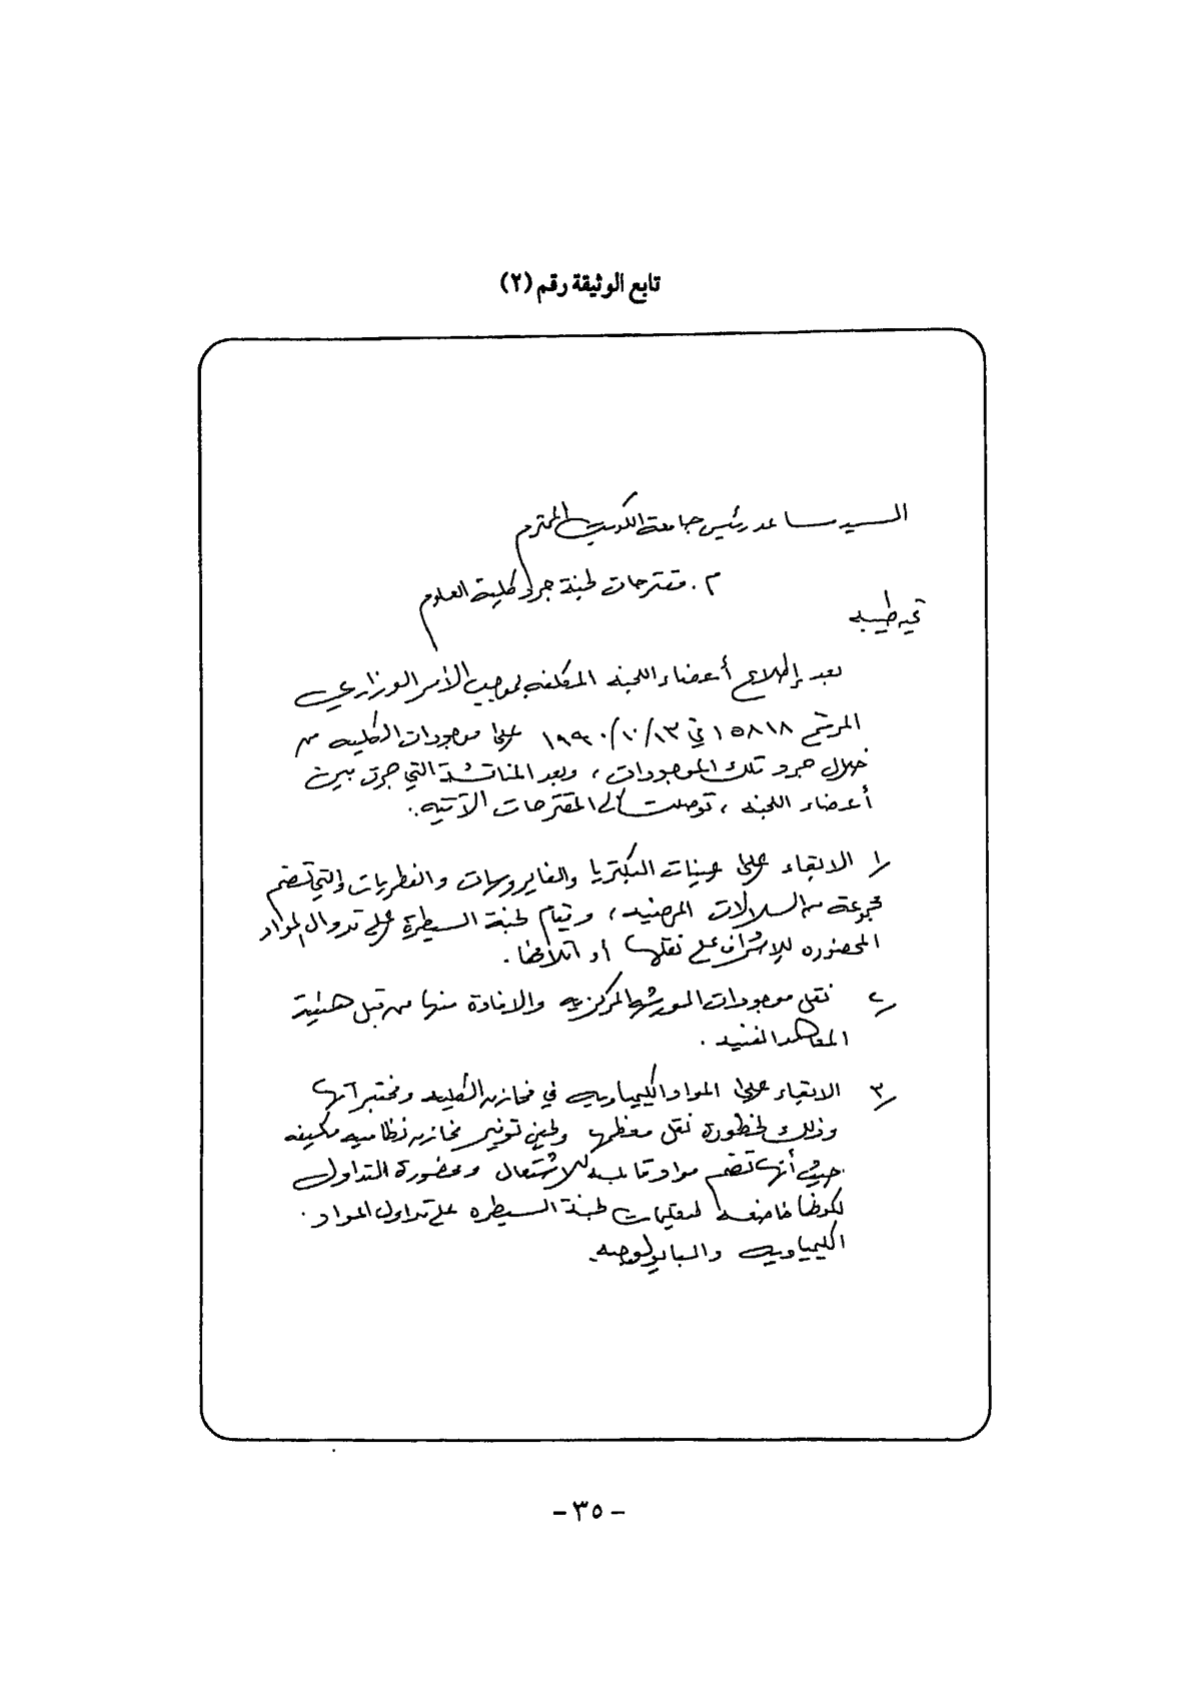 تابع الوثيقة رقم (٢)
السيد مساعد رئيس جامعة الكويت المحترم
م . مقترحات لجنة جرد كلية العلوم
تحيه طيبه
بعد إطلاع أعضاء اللجنه المكلفه بموجب الأمر الوزاري
المرقم ١٥٨١٨ في ١٩٩٠/١٠/١٣ على موجودات الكليه من
خلال جرد تلك الموجودات ، وبعد المناقشة التي جرت بين
أعضاء اللجنه ، توصلت إلى المقترحات الآتيه :.
١/ الابقاء على عينات البكتريا والفايروسات والفطريات والتي تضم
مجموعة من السلالات المرضيه ، وقيام لجنة السيطرة على تدوال المواد
المحضوره للإشراف على نقلها أو اتلافها .
٢/ نقل موجودات الورشه المركزيه والافادة منها من قبل هيئة
المعاهد الفنيه .
٣/ الابقاء على المواد الكيمياويه في مخازن الكليه ومختبراتها
وذلك لخطورة نقل معظمها ولحين توفير مخازن نظاميه مكيفه
حيث أنها تضم مواد قابله للاشتعال ومحضورة التداول
لكونها خاضعه لتعليمات لجنة السيطره على تداول المواد .
الكيمياويه والبايولوجيه .
- ٣٥ -